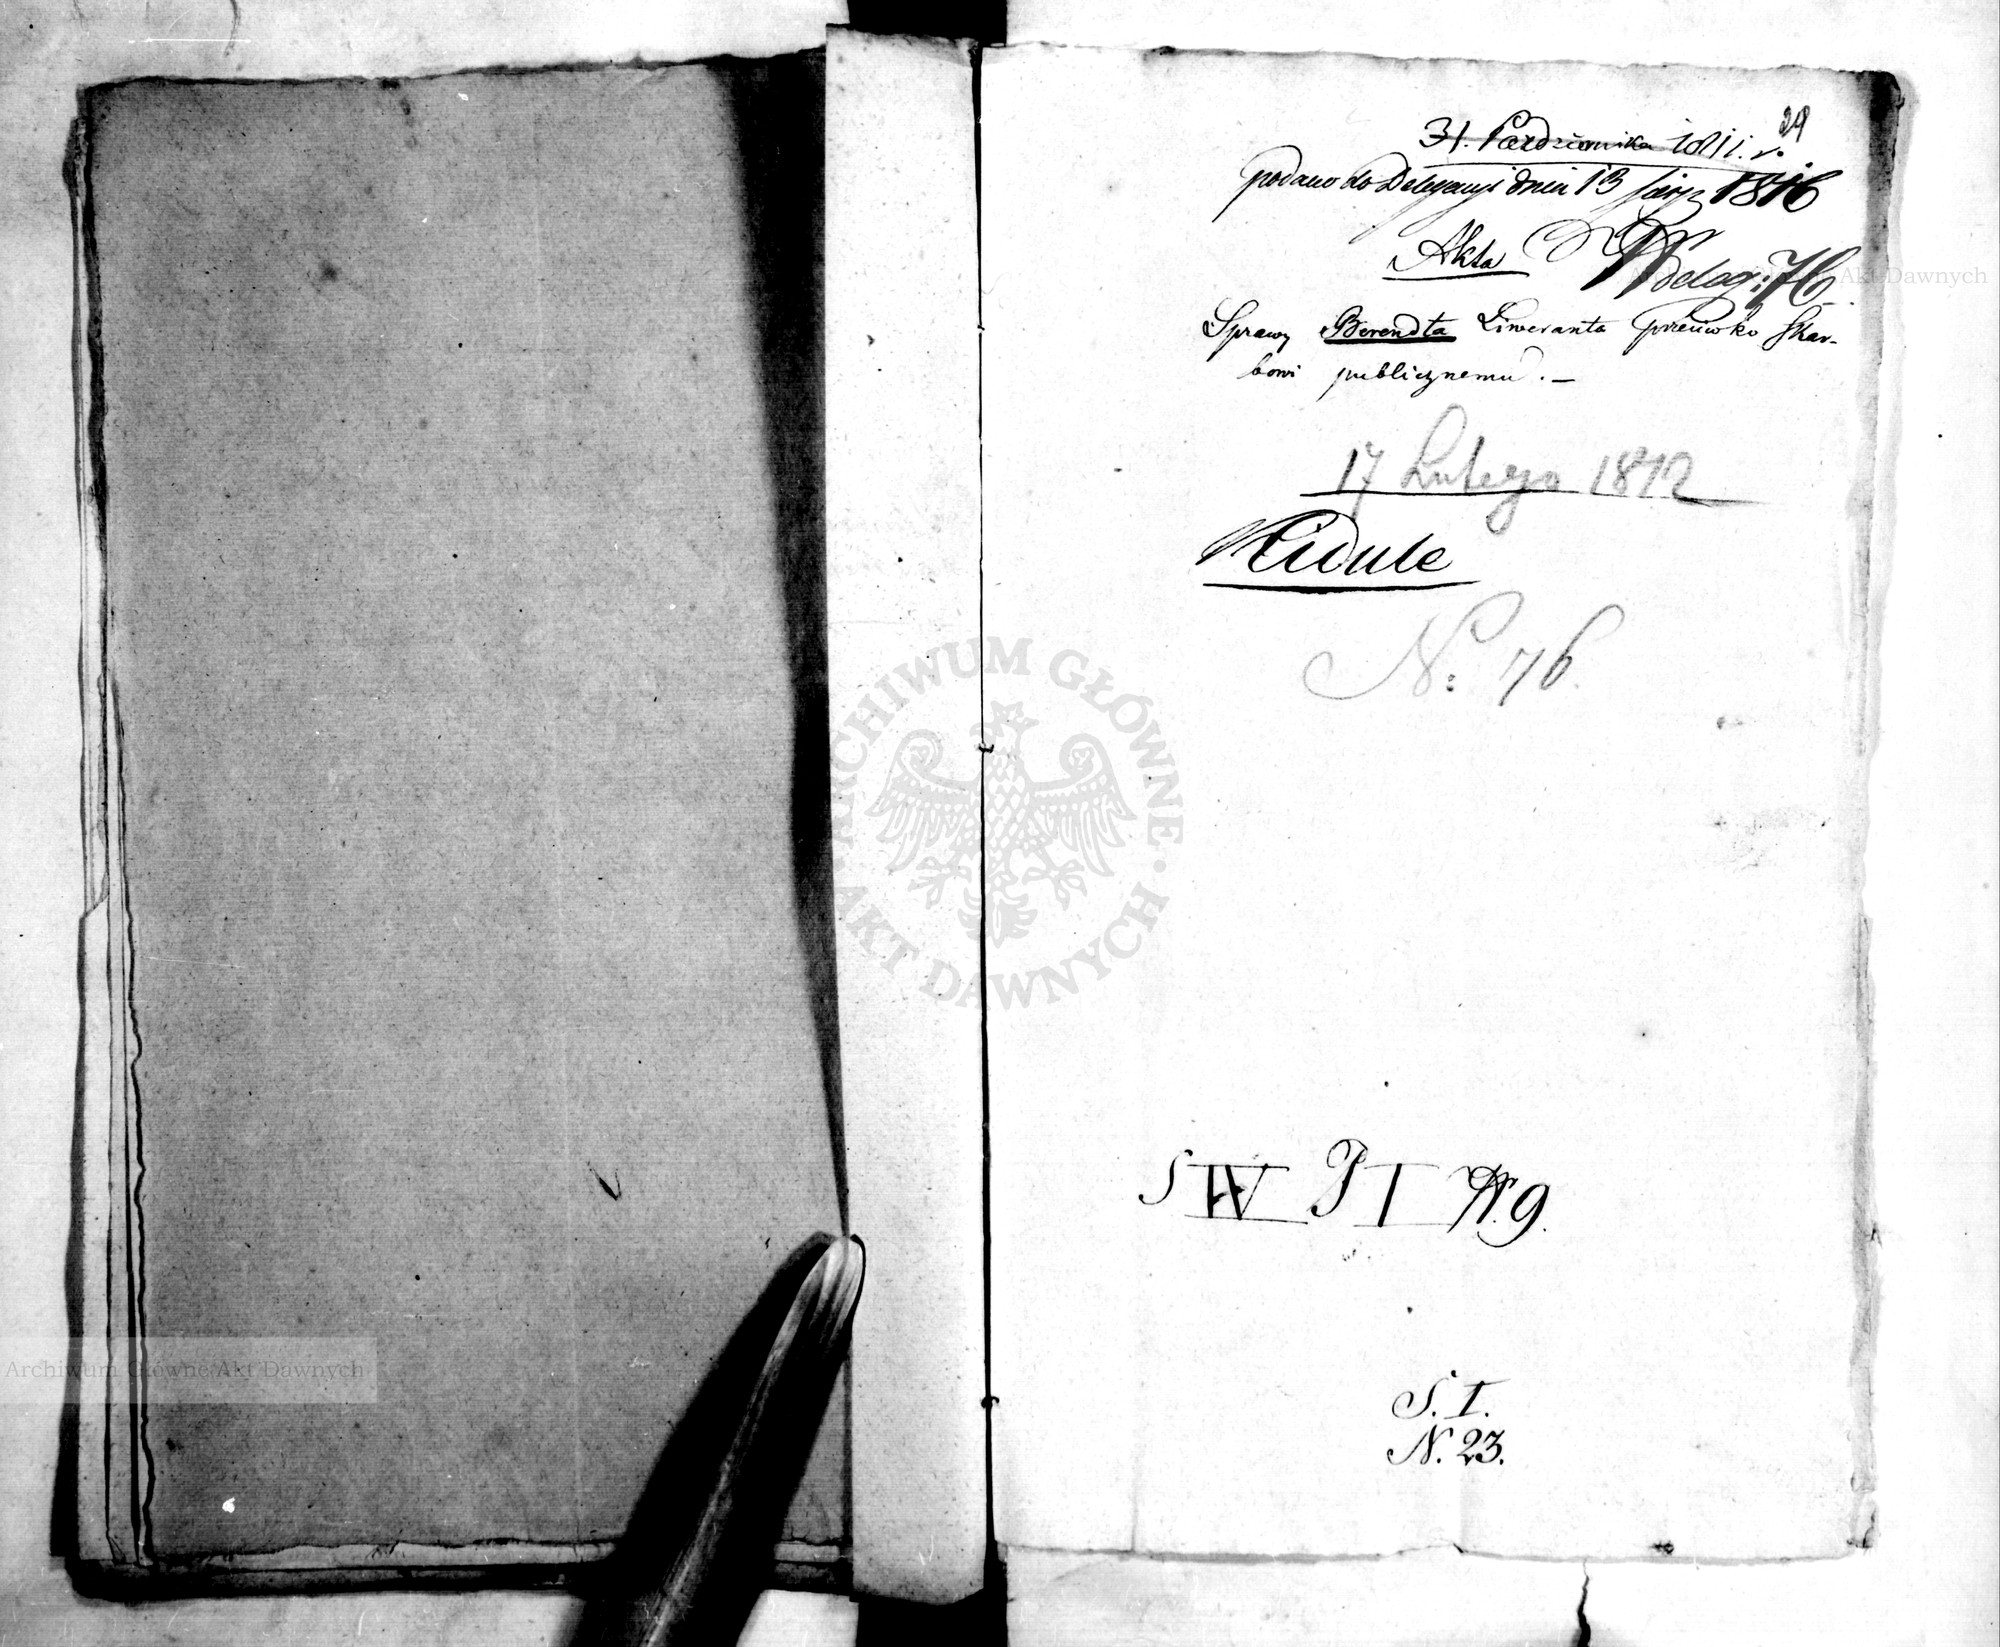 29
31. Pazdziernika 1811. r.
podano do Delegacyi dnia 13 1816
Akta
N Deleg: 76
Sprawy Berendta Liweranta przeciwko Skar-
bowi publicznemu. —
17 Lutego 1812
N: 76
S IV P I N. 9.
S. I.
N. 23.
ARCHIWUM GŁÓWNE · AKT DAWNYCH ·
Archiwum Główne Akt Dawnych
Archiwum Główne Akt Dawnych